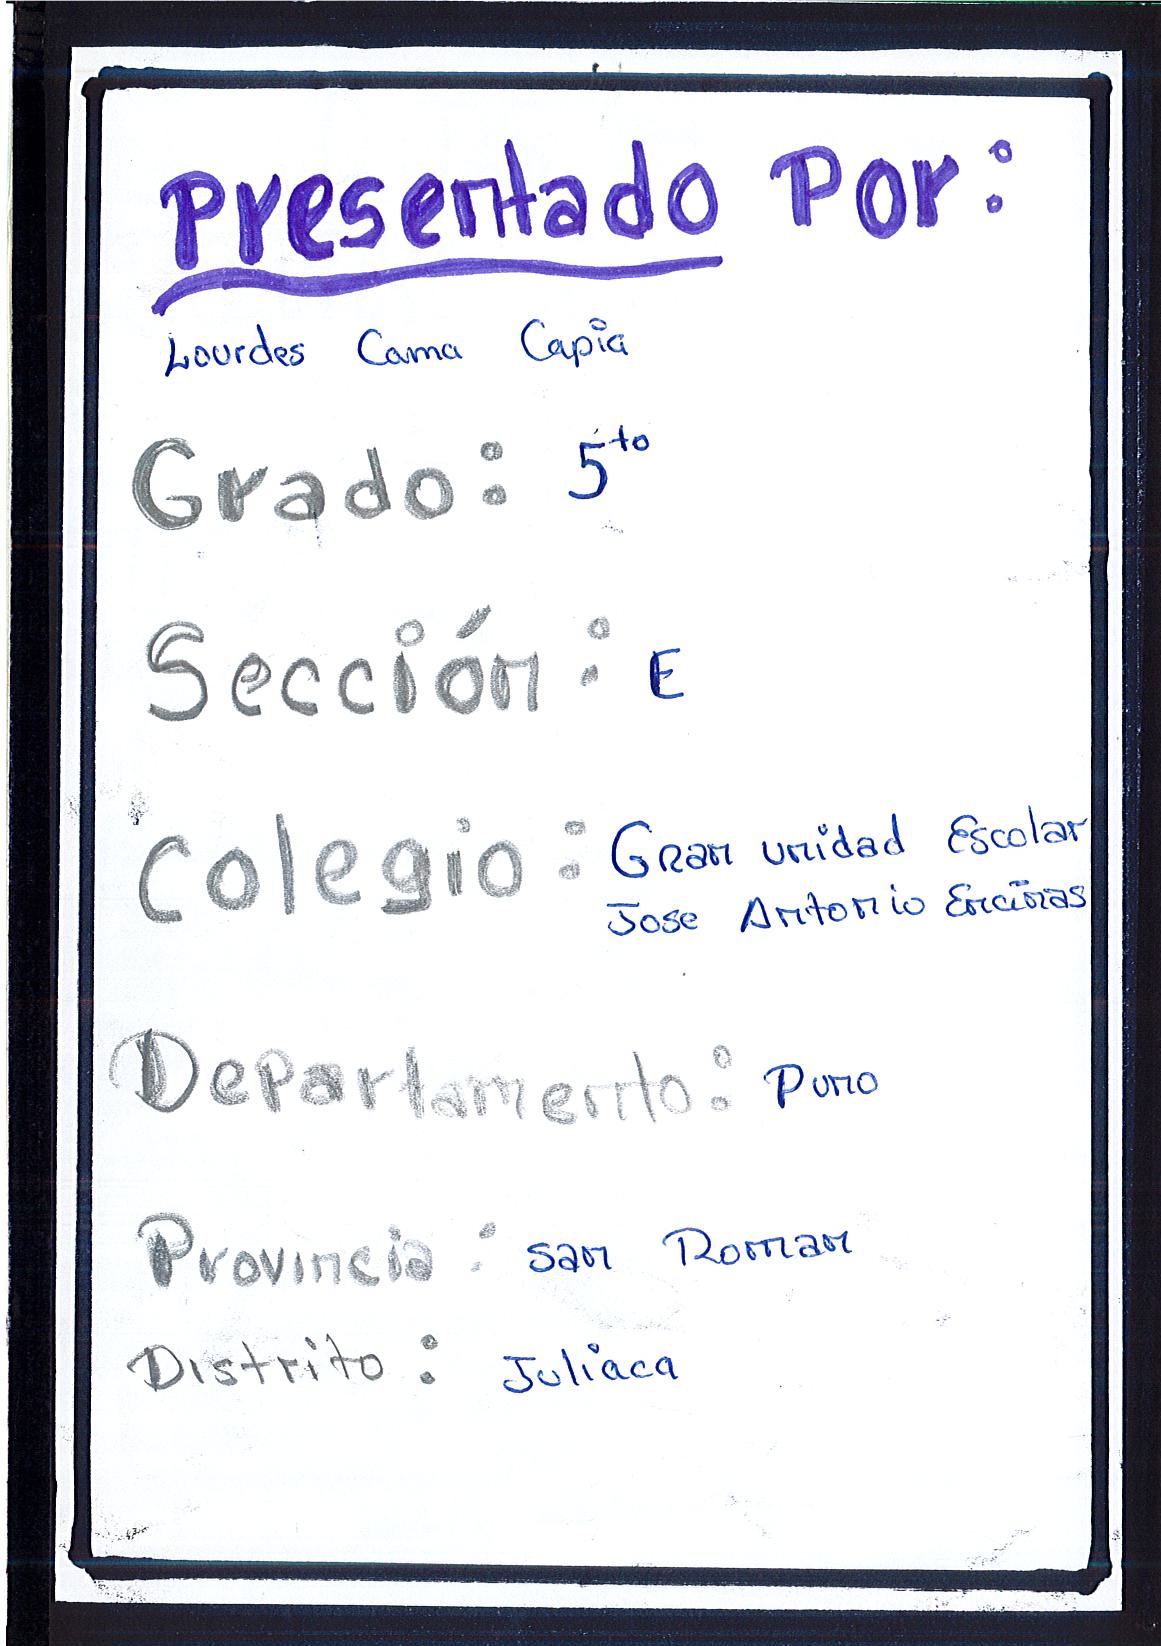 Presentado Por:
Lourdes Cama Capia
Grado: 5to
Sección: E
Colegio: Gran unidad Escolar
Jose Antonio Encinas
Departamento: Puno
Provincia: san Roman
Distrito: Juliaca